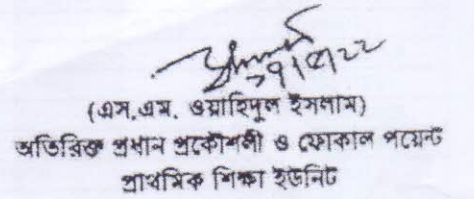 (এস.এম. ওয়াহিদুল ইসলাম)
অতিরিক্ত প্রধান প্রকৌশলী ও ফোকাল পয়েন্ট
প্রাথমিক শিক্ষা ইউনিট